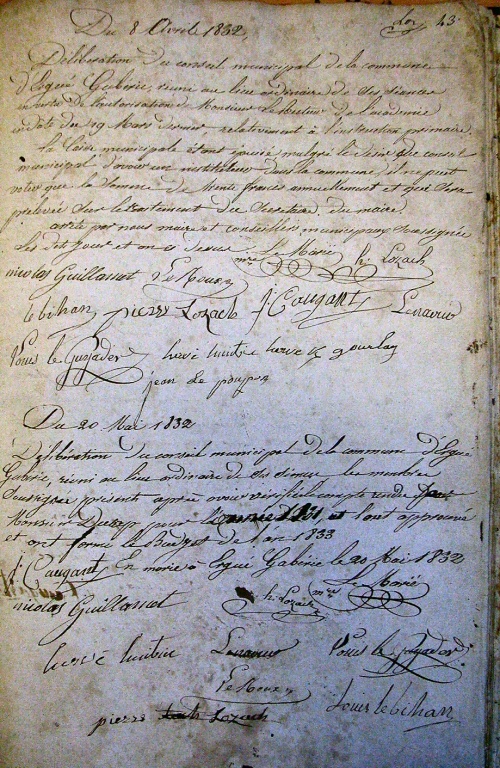 43.
Du 8 Avrile 1832,
Déliberation du conseil municipal de la commune
d'Ergué Gaberic, réuni au lieu ordinaire de ses séances
en vertu de l'autorisation de Monsieur Le Recteur de l'academie
en date du 29 Mars dernier, relativement à l'instruction primaire.
La Caisse municipale étant épuisé malgré le desir du conseil
municipal d'avoir un instituteur dans la commune, il ne peut
voter que la somme de trente francs annuellement et qui sera
prelevée sur le traitement du Secretaire du maire.
arrêté par nous maire et conseillers municipaux soussignée
les dit jour et an ci dessus Le Marié mre h: Lozach
nicolas Guillamot Le Rouzy
le bihan pierre Lozach j: Cougant Lenaour
Louis le Guyader hervé huitric herve le gourlay
jean Le poupon
Du 20 Mai 1832
Délibération du conseil municipal de la commune d'Ergué
Gaberic, réuni au lieu ordinaire de ses séances les membres
soussignés présent après avoir vérifié le compte rendu par
Monsieur pour l'année 1831, et l'ont approuvé
et ont formé le Budget de l'an 1833
j: Cougant En mairie à Ergué Gaberic le 20 Mai 1832
Le Marié mre
nicolas Guillamot h: Lozach
hervé huitric Lenaour Louis le Guyader
Le Rouzy
pierre Lozach Louis le bihan